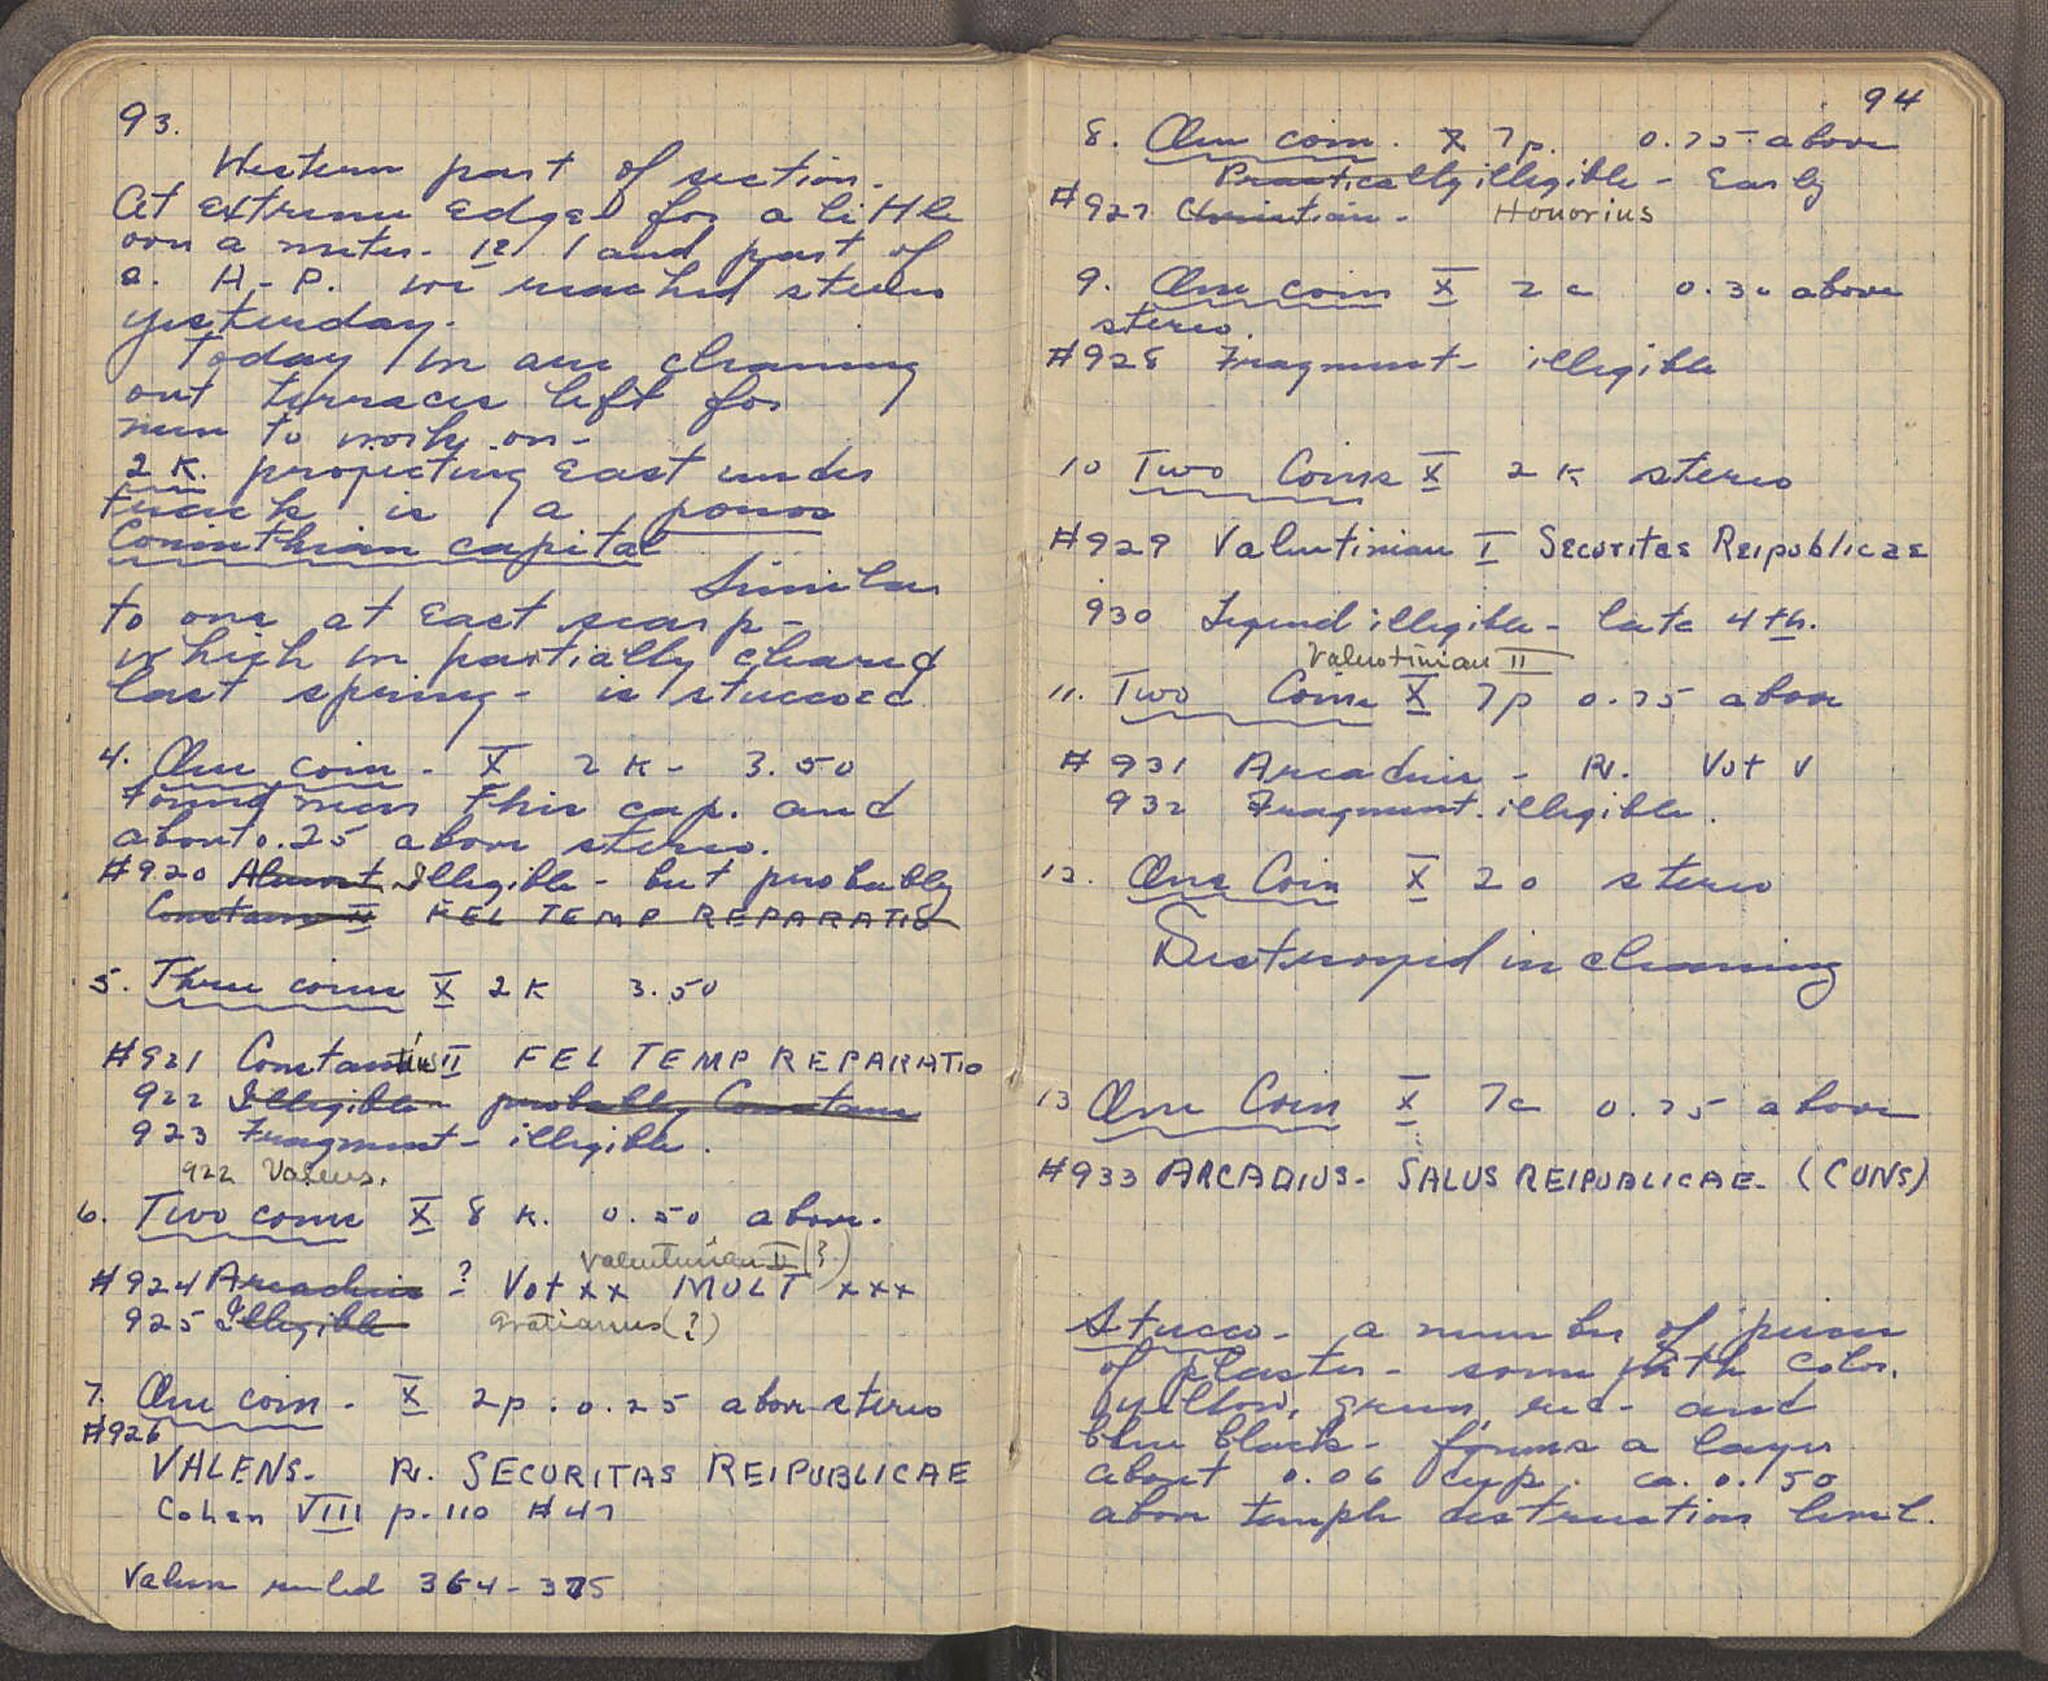 93.
Western part of section.
At extreme edge for a little
over a meter. 12 1 and part of
a. H-P. we reached stereo
yesterday.
Today we are cleaning
out terraces left for
men to work on-
2 K. projecting East under
track is a poros
Corinthian capital
Similar
to one at East scarp-
which we partially cleared
last spring- is stuccoed.
4. One coin - X 2 K - 3.50
found near this cap. and
about 0.25 above stereo.
#920 Almost Illegible - but probably
Constans II FEL TEMP REPARATIO
5. Three coins X 2 K 3.50
#921 Constantius II FEL TEMP REPARATIO
922 Illegible - probably Constans
923 Fragment - illegible.
922 Valens.
6. Two coins X 8 K. 0.50 above.
Valentinian II (?)
#924 Arcadius - ? Vot xx MULT xxx
925 Illegible Gratianus (?)
7. One coin - X 2p. 0.25 above stereo
#926
VALENS - R. SECURITAS REIPUBLICAE
Cohen VIII p. 110 #47
Valens ruled 364-375
94
8. One coin. X 7p. 0.75 above
Practically illegible - Early
#927 Christian - Honorius
9. One coin X 2c 0.30 above
stereo.
#928 Fragment - illegible
10 Two Coins X 2 K stereo
#929 Valentinian I Securitas Reipublicae
930 Legend illegible - late 4th.
Valentinian II
11. Two Coins X 7p 0.75 above
#931 Arcadius - R. Vot V
932 Fragment. illegible.
12. One Coin X 20 stereo
Destroyed in cleaning
13 One Coin X 7c 0.75 above
#933 ARCADIUS - SALUS REIPUBLICAE - (CONS)
Stucco - a number of pieces
of plaster - some with color.
yellow, green, red - and
blue black - forms a layer
about 0.06 deep. ca. 0.50
above temple destruction level.